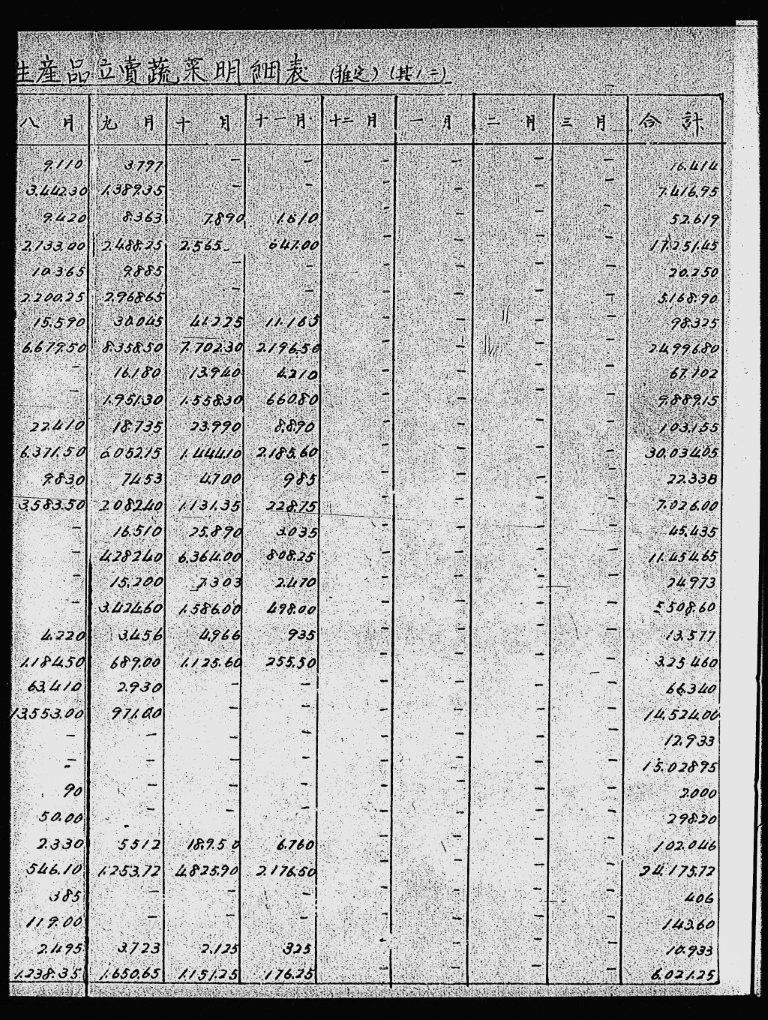 生産品立賣蔬菜明細表 (推定) (其ノ二)
八月 九月 十月 十一月 十二月 一月 二月 三月 合計
9.110 3.797 - - - - - - 16.414
3.442.30 1.389.35 - - - - - - 7.416.95
9.420 8.363 7.890 1.610 - - - - 52.619
2.133.00 2.488.25 2.565.- 647.00 - - - - 17.251.45
10.365 9.885 - - - - - - 20.250
2.200.25 2.968.65 - - - - - - 5.168.90
15.590 30.045 41.225 11.165 - - - - 98.325
6.679.50 8.358.50 7.702.30 2.196.50 - - - - 24.996.80
- 16.180 13.940 4.210 - - - - 67.102
- 1.951.30 1.558.30 660.80 - - - - 9.889.15
22.410 18.735 23.990 8.890 - - - - 103.155
6.371.50 6.052.15 1.444.10 2.185.60 - - - - 30.034.05
9.830 7.453 4.700 985 - - - - 22.338
3.583.50 2.082.40 1.131.35 228.75 - - - - 7.026.00
- 16.510 25.890 3.035 - - - - 45.435
- 4.282.40 6.364.00 808.25 - - - - 11.454.65
- 15.200 7.303 2.470 - - - - 24.973
- 3.424.60 1.586.00 498.00 - - - - 5.508.60
4.220 3.456 4.966 935 - - - - 13.577
1.184.50 689.00 1.125.60 255.50 - - - - 3.254.60
63.410 2.930 - - - - - - 66.340
13.553.00 971.00 - - - - - - 14.524.00
- - - - - - - - 12.933
- - - - - - - - 15.028.95
90 - - - - - - - 2.000
50.00 - - - - - - - 298.20
2.330 5.512 18.950 6.760 - - - - 102.046
546.10 1.253.72 4.825.90 2.176.50 - - - - 24.175.72
385 - - - - - - - 406
119.00 - - - - - - - 143.60
2.495 3.723 2.125 325 - - - - 10.933
1.238.35 1.650.65 1.151.25 176.25 - - - - 6.021.25